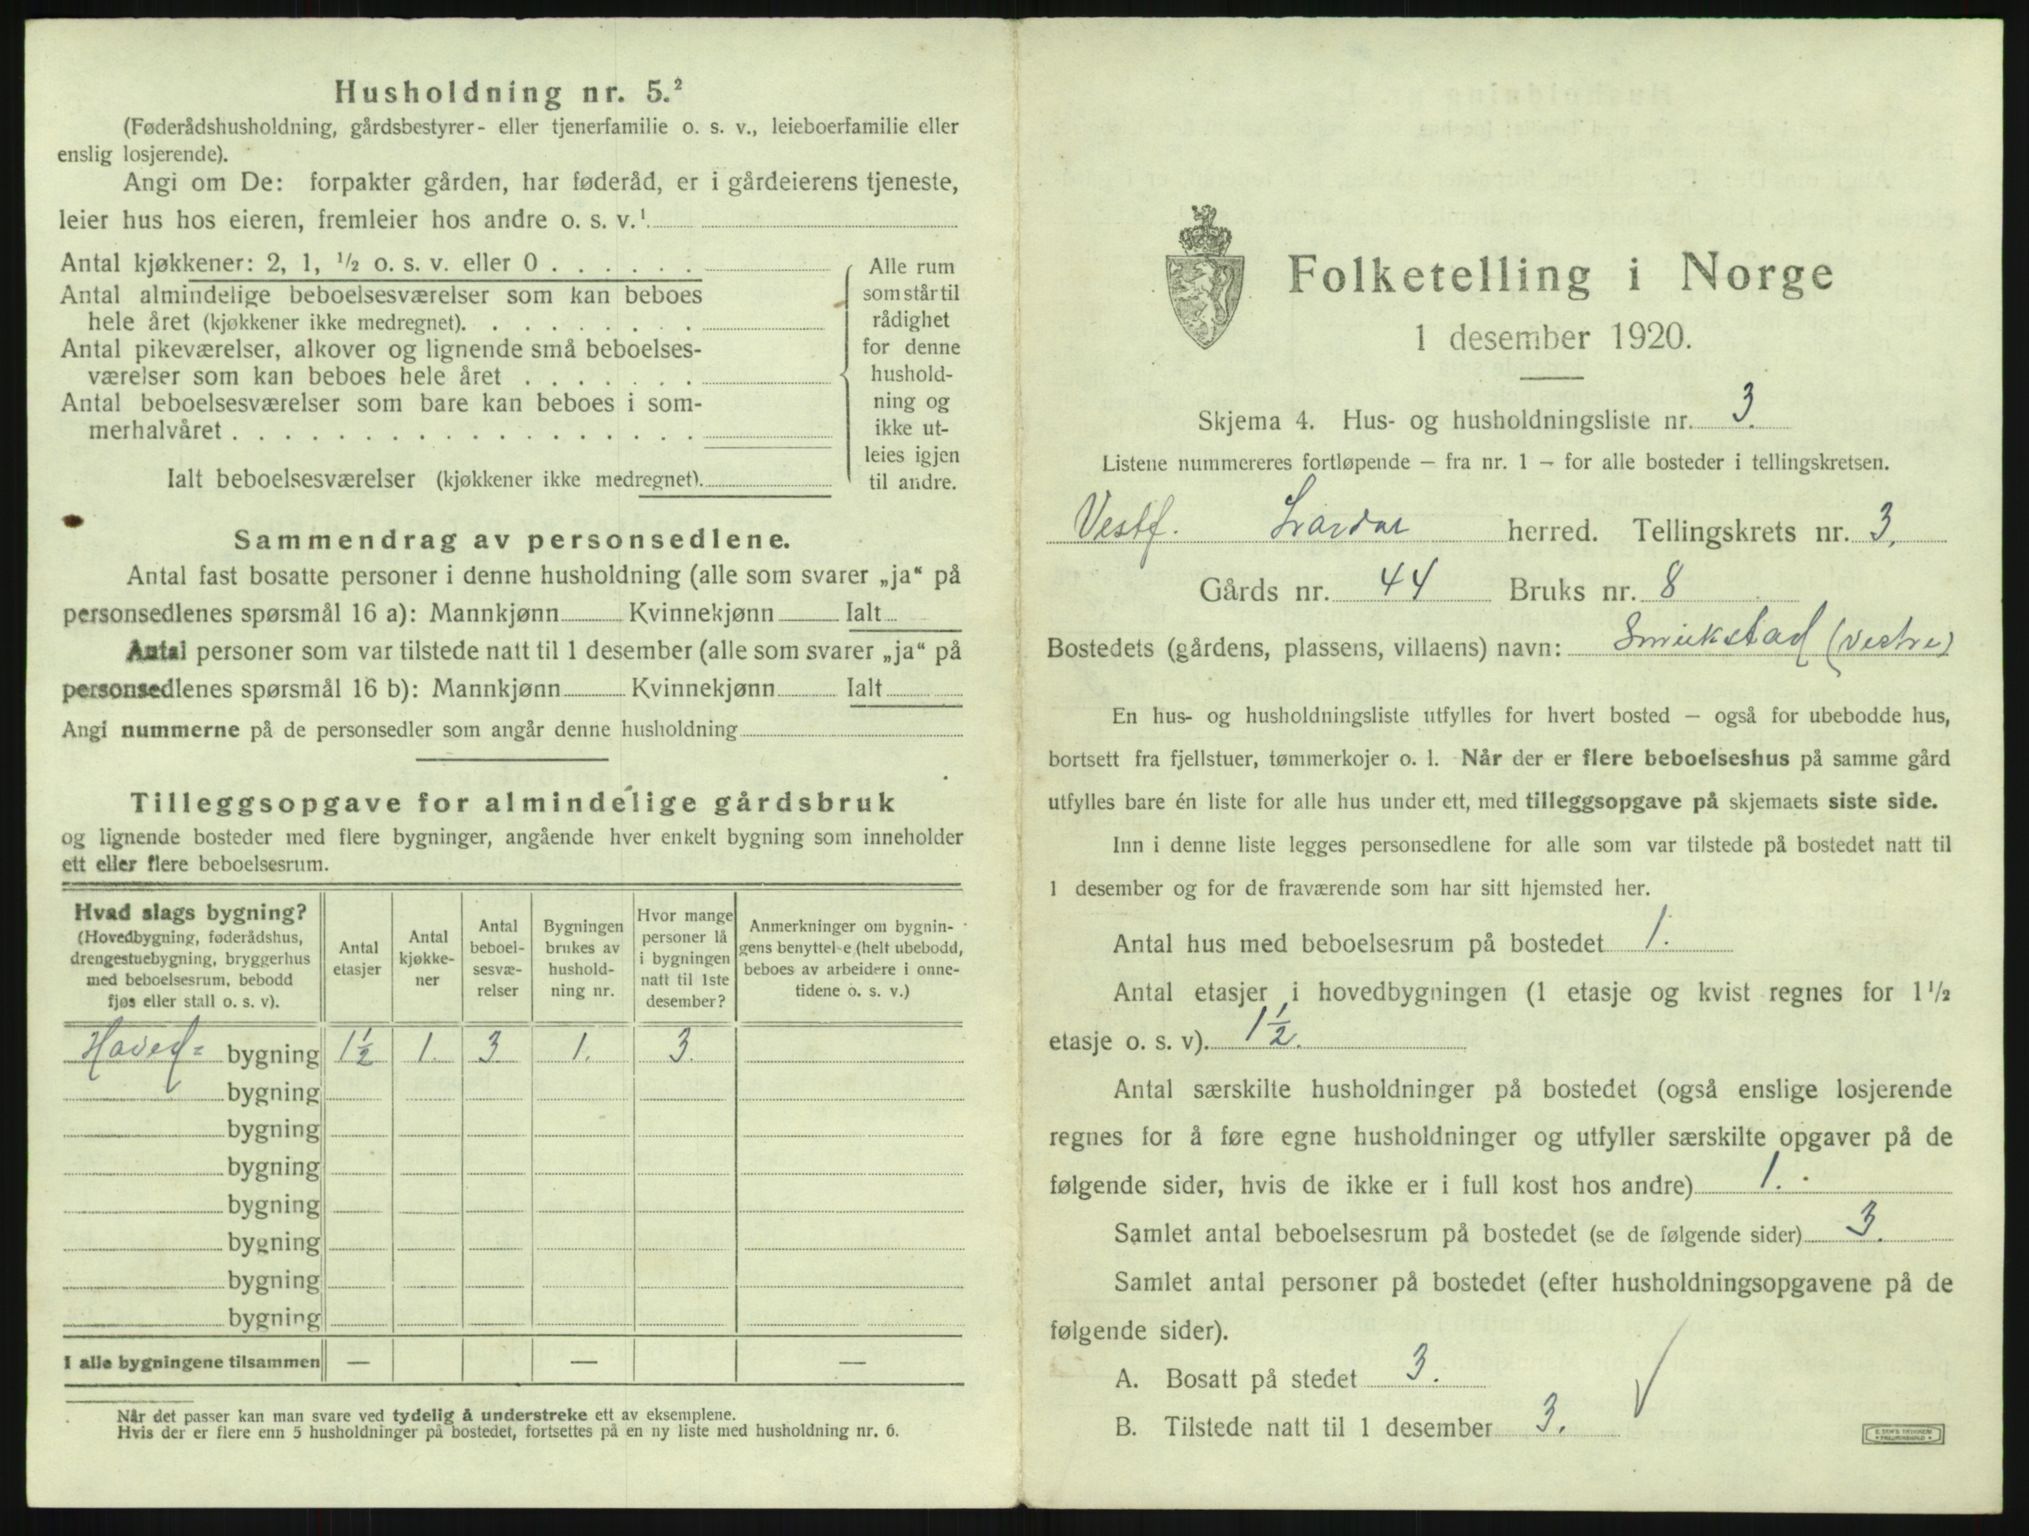 Husholdning nr. 5.²
(Føderådshusholdning, gårdsbestyrer- eller tjenerfamilie o. s. v., leieboerfamilie eller
enslig losjerende).
Angi om De: forpakter gården, har føderåd, er i gårdeierens tjeneste,
leier hus hos eieren, fremleier hos andre o. s. v.¹
Antal kjøkkener: 2, 1, ¹/₂ o. s. v. eller 0 . . . . . .
Antal almindelige beboelsesværelser som kan beboes
hele året (kjøkkener ikke medregnet). . . . . . . . .
Antal pikeværelser, alkover og lignende små beboelses-
værelser som kan beboes hele året . . . . . . .
Antal beboelsesværelser som bare kan beboes i som-
merhalvåret . . . . . . . . . . . . . . . . . .
Ialt beboelsesværelser (kjøkkener ikke medregnet).
Alle rum
som står til
rådighet
for denne
hushold-
ning og
ikke ut-
leies igjen
til andre.
Sammendrag av personsedlene.
Antal fast bosatte personer i denne husholdning (alle som svarer „ja“ på
personsedlenes spørsmål 16 a): Mannkjønn Kvinnekjønn Ialt
Antal personer som var tilstede natt til 1 desember (alle som svarer „ja“ på
personsedlenes spørsmål 16 b): Mannkjønn Kvinnekjønn Ialt
Angi nummerne på de personsedler som angår denne husholdning
Tilleggsopgave for almindelige gårdsbruk
og lignende bosteder med flere bygninger, angående hver enkelt bygning som inneholder
ett eller flere beboelsesrum.
Hvad slags bygning?
(Hovedbygning, føderådshus,
drengestuebygning, bryggerhus
med beboelsesrum, bebodd
fjøs eller stall o. s. v).
Antal
etasjer
Antal
kjøkke-
ner
Antal
beboel-
sesvæ-
relser
Bygningen
brukes av
hushold-
ning nr.
Hvor mange
personer lå
i bygningen
natt til 1ste
desember?
Anmerkninger om bygnin-
gens benyttelse (helt ubebodd,
beboes av arbeidere i onne-
tidene o. s. v.)
Hoved- bygning 1½ 1. 3 1. 3.
bygning
bygning
bygning
bygning
bygning
bygning
bygning
I alle bygningene tilsammen — — —
Når det passer kan man svare ved tydelig å understreke ett av eksemplene.
Hvis der er flere enn 5 husholdninger på bostedet, fortsettes på en ny liste med husholdning nr. 6.
Folketelling i Norge
1 desember 1920.
Skjema 4. Hus- og husholdningsliste nr. 3.
Listene nummereres fortløpende — fra nr. 1 — for alle bosteder i tellingskretsen.
Vestf. Lardal herred. Tellingskrets nr. 3.
Gårds nr. 44 Bruks nr. 8
Bostedets (gårdens, plassens, villaens) navn: (vestre)
En hus- og husholdningsliste utfylles for hvert bosted — også for ubebodde hus,
bortsett fra fjellstuer, tømmerkojer o. l. Når der er flere beboelseshus på samme gård
utfylles bare én liste for alle hus under ett, med tilleggsopgave på skjemaets siste side.
Inn i denne liste legges personsedlene for alle som var tilstede på bostedet natt til
1 desember og for de fraværende som har sitt hjemsted her.
Antal hus med beboelsesrum på bostedet 1.
Antal etasjer i hovedbygningen (1 etasje og kvist regnes for 1¹/₂
etasje o. s. v). 1½.
Antal særskilte husholdninger på bostedet (også enslige losjerende
regnes for å føre egne husholdninger og utfyller særskilte opgaver på de
følgende sider, hvis de ikke er i full kost hos andre) 1.
Samlet antal beboelsesrum på bostedet (se de følgende sider) 3.
Samlet antal personer på bostedet (efter husholdningsopgavene på de
følgende sider).
A. Bosatt på stedet 3.
B. Tilstede natt til 1 desember 3.